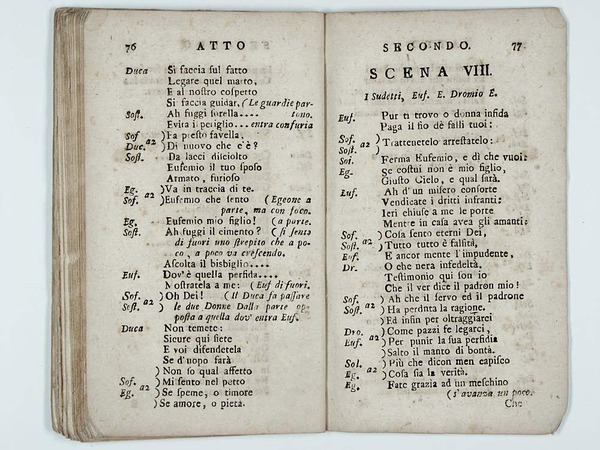 76 ATTO
Duca Si faccia sul fatto
Legare quel matto,
E al nostro cospetto
Si faccia guidar. (Le guardie par-
Sost. Ah fuggi sorella.... tono.
Evita i periglio... entra con furia
Sof. ) Fa presto favella,
Duc. a2 ) Di nuovo che c'è?
Sost. Da lacci disciolto
Eufemio il tuo sposo
Armato, furioso
Eg. ) Va in traccia di te.
Sof. a2 ) Eufemio che sento (Egeone a
parte, ma con foco.
Eg. Eufemio mio figlio! (a parte.
Sost. Ah fuggi il cimento? (si sente
di fuori uno strepito che a po-
co, a poco va crescendo.
Ascolta il bisbiglio....
Euf. Dov'è quella perfida....
Mostratela a me: (Euf di fuori.
Sof. ) Oh Dei! (Il Duca fa passare
Sost. a2 ) le due Donne dalla parte op-
posta a quella dov' entra Euf.
Duca Non temete:
Sicure qui siete
E voi difendetela
Se d'uopo farà
) Non so qual affetto
Sof. a2 ) Mi sento nel petto
Eg. ) Se speme, o timore
) Se amore, o pietà.
SECONDO. 77
SCENA VIII.
I Sudetti, Euf. E. Dromio E.
Euf. Pur ti trovo o donna infida
Paga il fio dè falli tuoi:
Sof. a2 ) Trattenetelo arrestatelo:
Sost.
Sol. Ferma Eufemio, e dì che vuoi:
Eg. Se costui non è mio figlio,
Giusto Cielo, e qual sarà.
Euf. Ah d'un misero consorte
Vendicate i dritti infranti:
Ieri chiuse a me le porte
Mentre in casa avea gli amanti:
Sof. ) Cosa sento eterni Dei,
Sost. a2 ) Tutto tutto è falsità,
Euf. E ancor mente l'impudente,
Dr. O che nera infedeltà,
Testimonio qui son io
Che il ver dice il padron mio!
Sof. ) Ah che il servo ed il padrone
Sost. a2 ) Ha perduta la ragione.
) Ed infin per oltraggiarci
Dro. ) Come pazzi fe legarci,
Euf. a2 ) Per punir la sua perfidia
) Salto il manto di bontà.
Sol. ) Più che dicon men capisco
Eg. a2 ) Cosa sia la verità.
Eg. Fate grazia ad un meschino
(s'avanza un poco.
Che